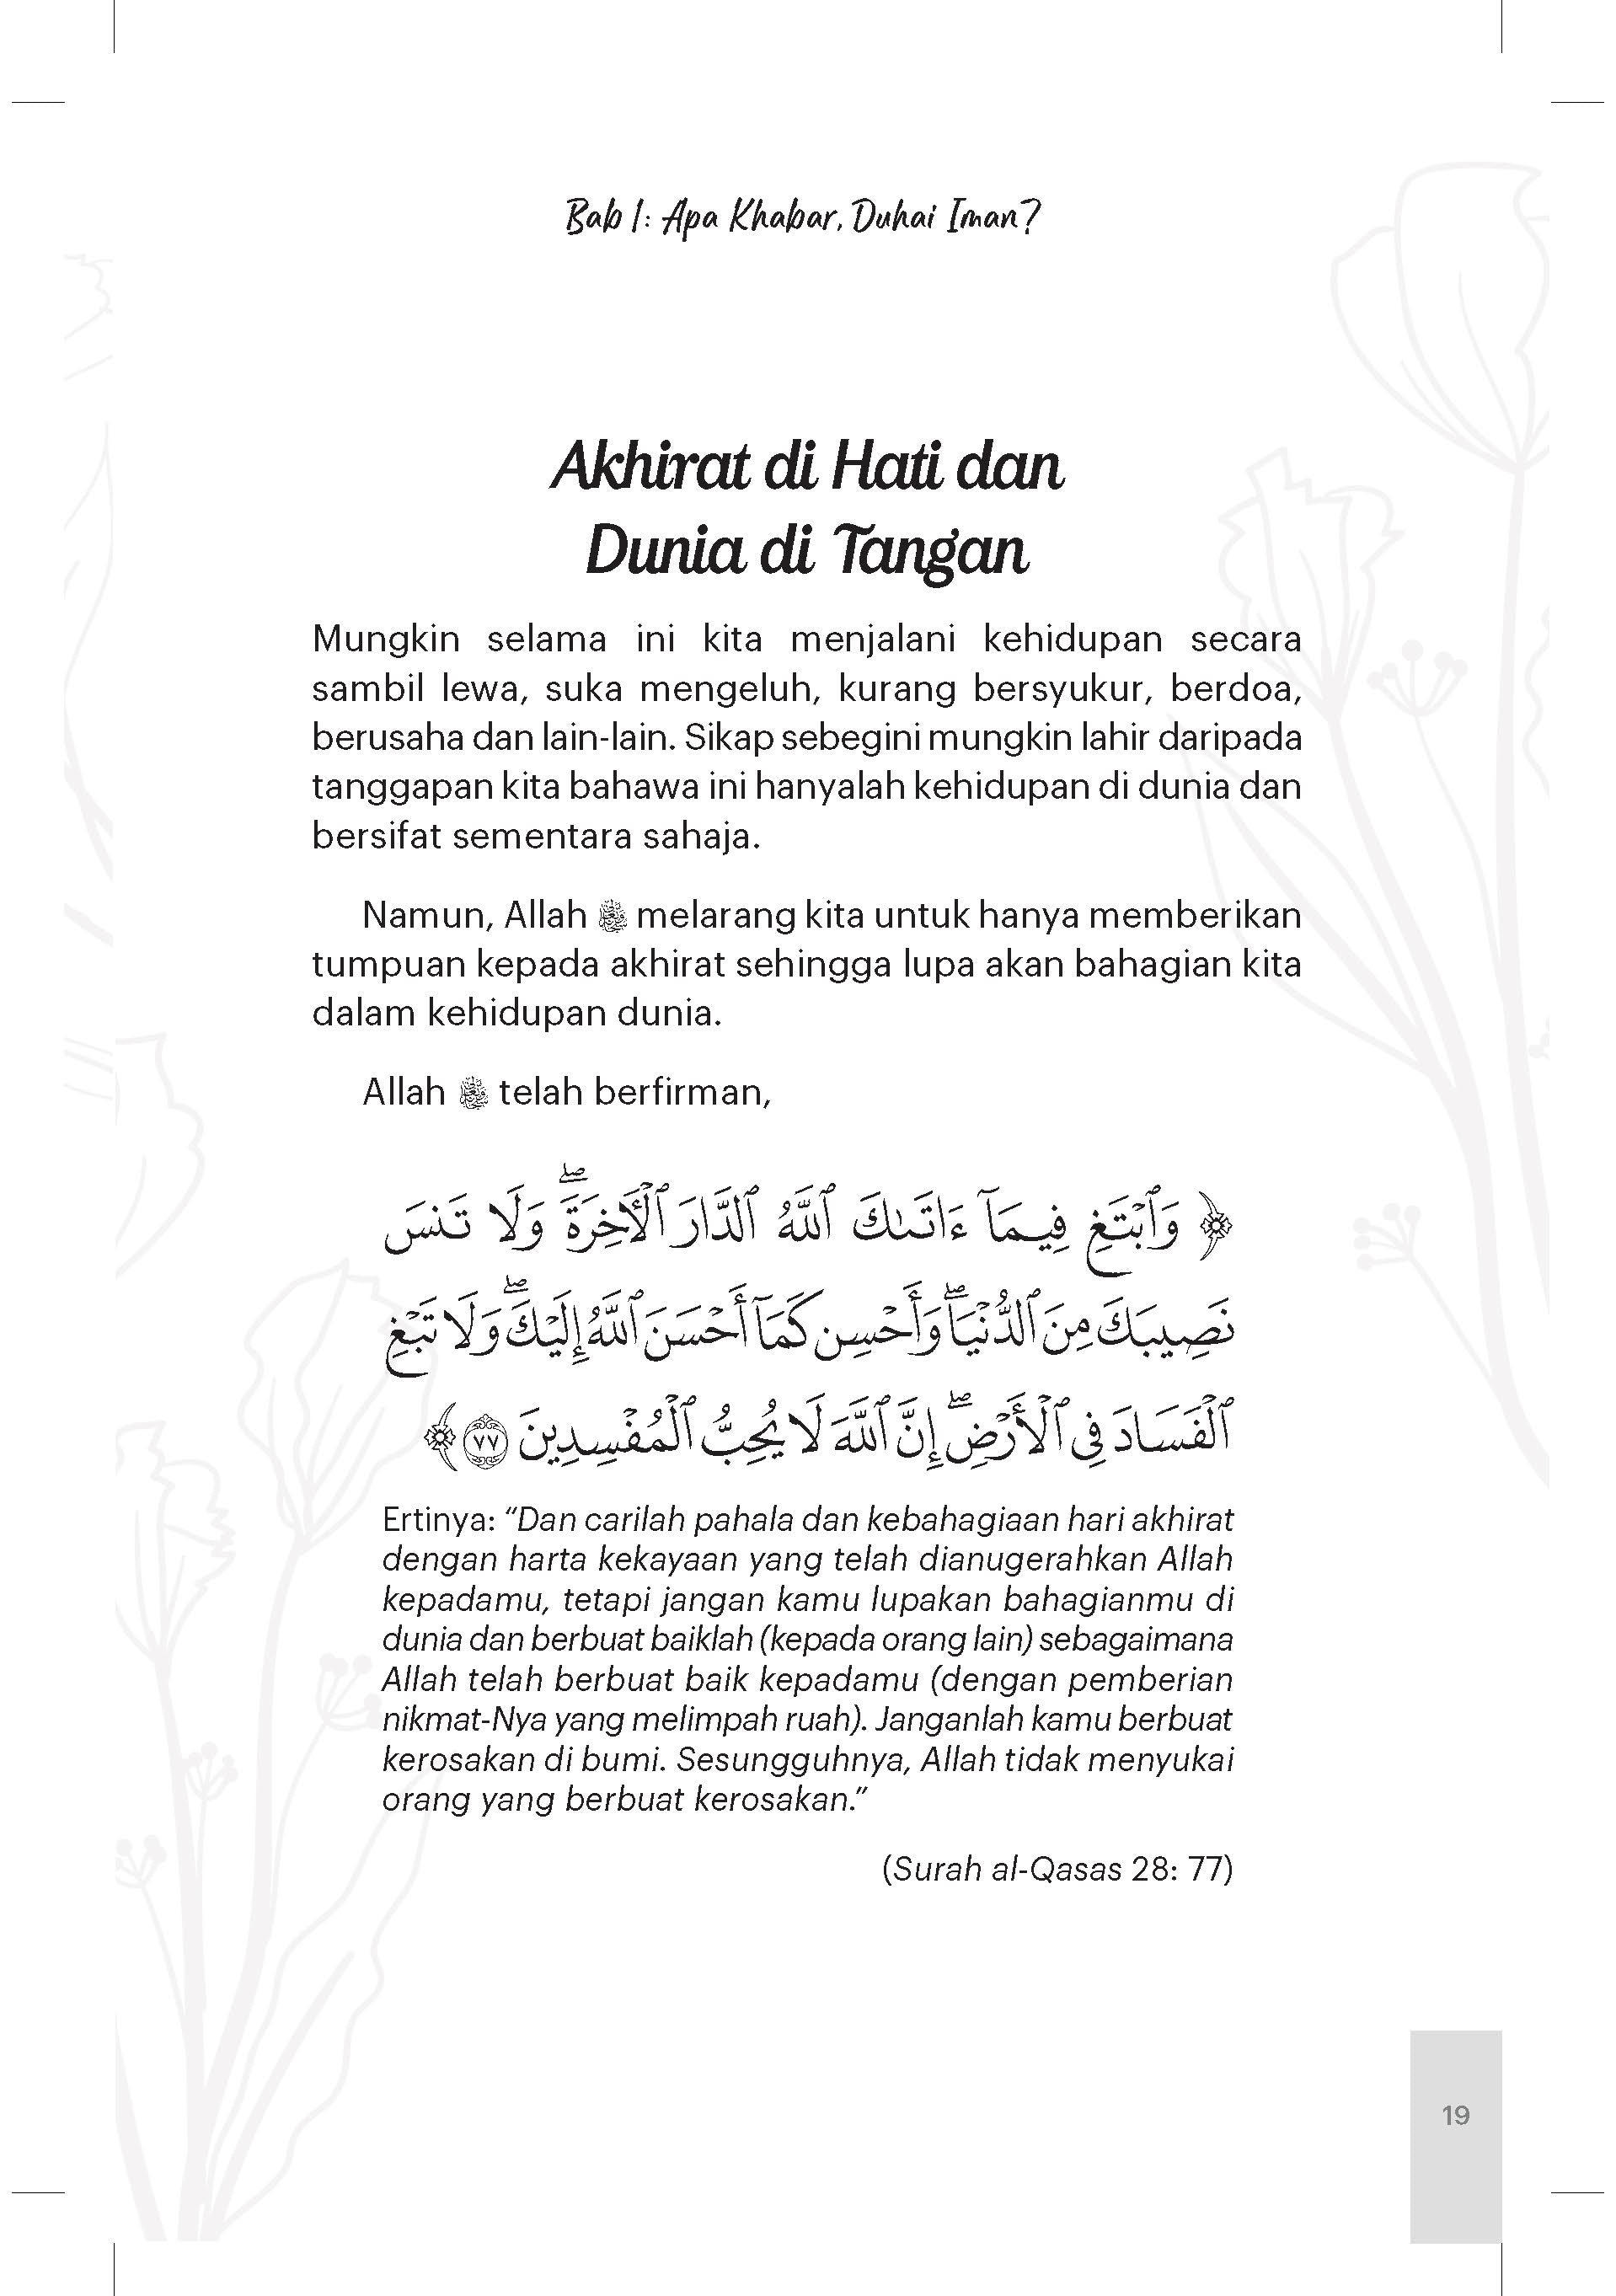 Bab 1: Apa Khabar, Duhai Iman?
Akhirat di Hati dan
Dunia di Tangan
Mungkin selama ini kita menjalani kehidupan secara
sambil lewa, suka mengeluh, kurang bersyukur, berdoa,
berusaha dan lain-lain. Sikap sebegini mungkin lahir daripada
tanggapan kita bahawa ini hanyalah kehidupan di dunia dan
bersifat sementara sahaja.
Namun, Allah ﷻ melarang kita untuk hanya memberikan
tumpuan kepada akhirat sehingga lupa akan bahagian kita
dalam kehidupan dunia.
Allah ﷻ telah berfirman,
﴿ وَٱبْتَغِ فِيمَآ ءَاتَىٰكَ ٱللَّهُ ٱلدَّارَ ٱلْأَخِرَةَ ۖ وَلَا تَنسَ
نَصِيبَكَ مِنَ ٱلدُّنْيَا ۖ وَأَحْسِن كَمَآ أَحْسَنَ ٱللَّهُ إِلَيْكَ ۖ وَلَا تَبْغِ
ٱلْفَسَادَ فِى ٱلْأَرْضِ ۖ إِنَّ ٱللَّهَ لَا يُحِبُّ ٱلْمُفْسِدِينَ ٧٧ ﴾
Ertinya: “Dan carilah pahala dan kebahagiaan hari akhirat
dengan harta kekayaan yang telah dianugerahkan Allah
kepadamu, tetapi jangan kamu lupakan bahagianmu di
dunia dan berbuat baiklah (kepada orang lain) sebagaimana
Allah telah berbuat baik kepadamu (dengan pemberian
nikmat-Nya yang melimpah ruah). Janganlah kamu berbuat
kerosakan di bumi. Sesungguhnya, Allah tidak menyukai
orang yang berbuat kerosakan.”
(Surah al-Qasas 28: 77)
19